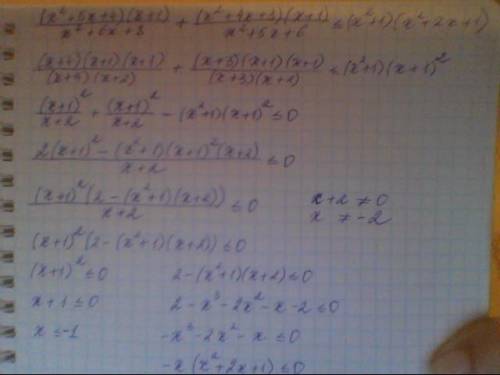 (x²+5x+4)(x+1)/(x²+6x+8) + (x²+4x+3)(x+1)/(x²+5x+6) ≤ (x²+1)(x²+2x+1)
(x+4)(x+1)(x+1)/((x+4)(x+2)) + (x+3)(x+1)(x+1)/((x+3)(x+2)) ≤ (x²+1)(x+1)²
(x+1)²/(x+2) + (x+1)²/(x+2) - (x²+1)(x+1)² ≤ 0
(2(x+1)² - (x²+1)(x+1)²(x+2))/(x+2) ≤ 0
(x+1)²(2-(x²+1)(x+2))/(x+2) ≤ 0
x+2 ≠ 0
x ≠ -2
(x+1)²(2-(x²+1)(x+2)) ≤ 0
(x+1)² ≤ 0
2-(x²+1)(x+2) ≤ 0
x+1 ≤ 0
2-x³-2x²-x-2 ≤ 0
x ≤ -1
-x³-2x²-x ≤ 0
-x(x²+2x+1) ≤ 0